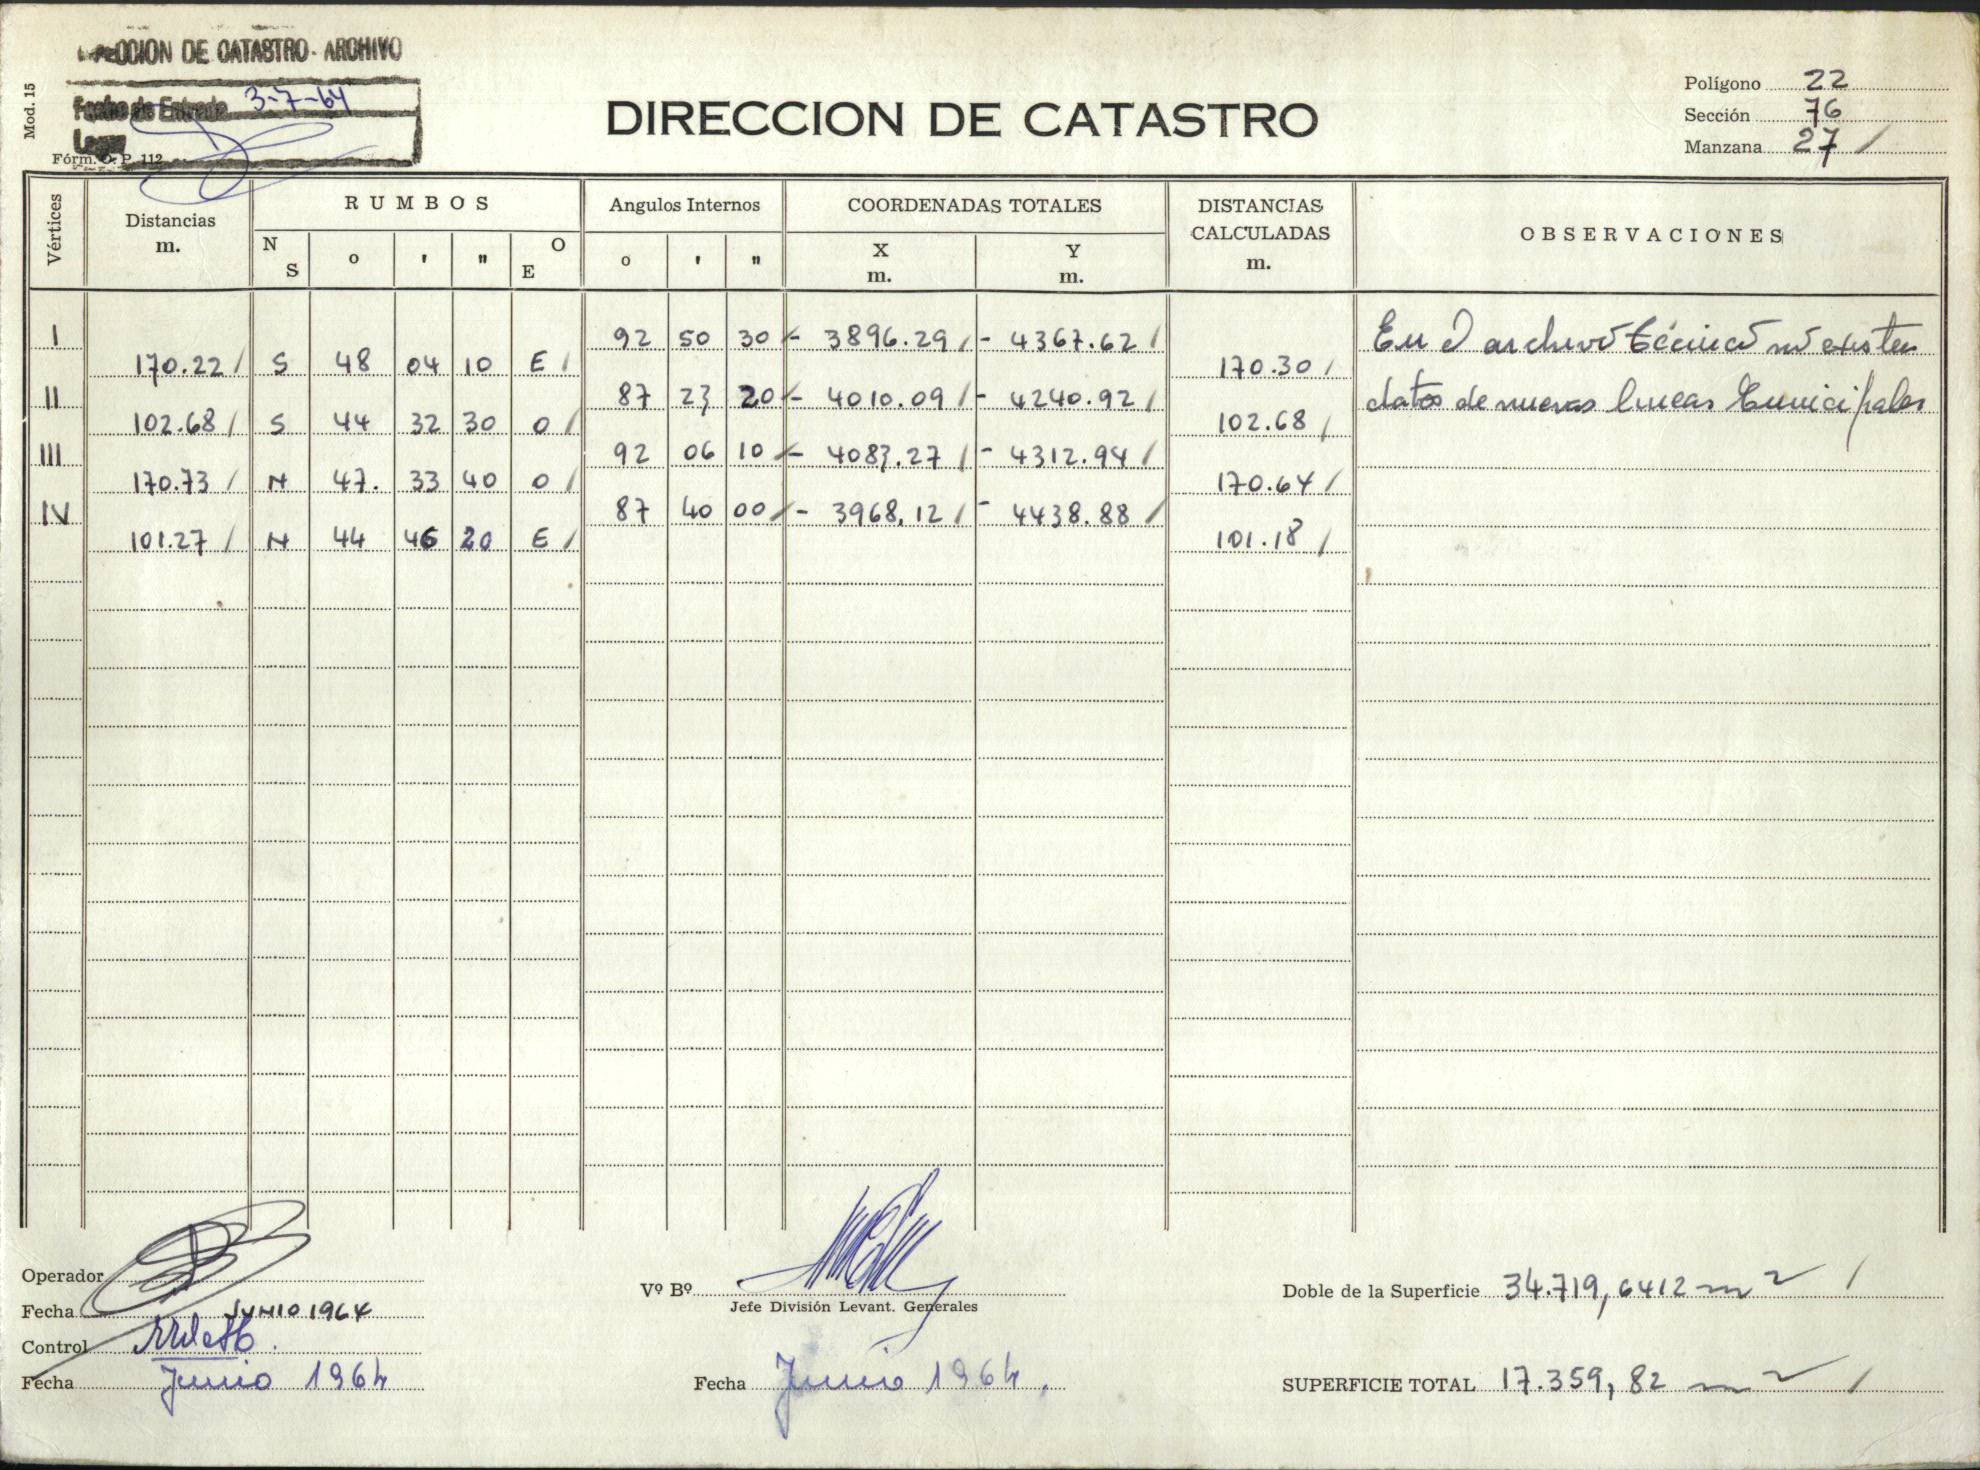 DIRECCION DE CATASTRO - ARCHIVO
Fecha de Entrada 3-7-64
Mod. 15
Fórm. O. P. 112
DIRECCION DE CATASTRO
Polígono 22
Sección 76
Manzana 27 /
Vértices Distancias m. RUMBOS N S o ' " O E Angulos Internos o ' " COORDENADAS TOTALES X m. Y m. DISTANCIAS CALCULADAS m. OBSERVACIONES
I 92 50 30 - 3896.29 / - 4367.62 / En el archivo técnico no existen
170.22 / S 48 04 10 E / 170.30 /
II 87 23 20 - 4010.09 / - 4240.92 / datos de nuevas lineas municipales
102.68 / S 44 32 30 O / 102.68 /
III 92 06 10 - 4083.27 / - 4312.94 /
170.73 / N 47. 33 40 O / 170.64 /
IV 87 40 00 / - 3968,12 / - 4438.88 /
101.27 / N 44 46 20 E / 101.18 /
Operador
Fecha JUNIO 1964
Control
Fecha Junio 1964
Vº Bº
Jefe División Levant. Generales
Fecha Junio 1964.
Doble de la Superficie 34.719,6412 m2 /
SUPERFICIE TOTAL 17.359,82 m2 /